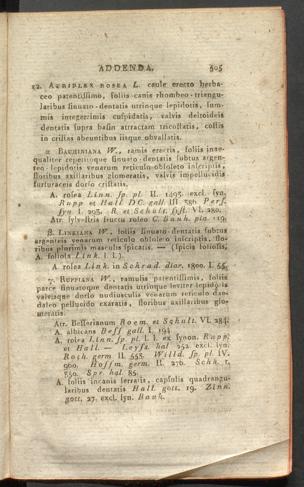 ADDENDA. 505
12. ATRIPLEX ROSEA L. caule erecto herba-
ceo patentissimo, foliis canis rhombeo-triangu-
laribus sinuato-dentatis utrinque lepidotis, sum-
mis integerrimis cuspidatis, valvis deltoideis
dentatis supra basin attractam tricostatis, costis
in cristas abeuntibus iisque obvallatis.
α BAUHINIANA W., ramis erectis, foliis inae-
qualiter repetitoque sinuato-dentatis subtus argen-
teo-lepidotis venarum reticulo obsoleto inscriptis,
floribus axillaribus glomeratis, valvis impellucidis
furfuraceis dorso cristatis.
A. rosea Linn. sp. pl. II. 1493. excl. syn.
Rupp et Hall DC. gall. III. 386. Pers.
syn. I. 293. R. et Schult. syst. VI. 280.
Atr. sylvestris fructu roseo C. Bauh. pin. 119.
β. LINKIANA W., foliis sinuato-dentatis subtus
argenteis venarum reticulo obsoleto inscriptis, flo-
ribus plurimis masculis spicatis. — (spicis foliosis,
A. foliosa Link. l. l.).
A. rosea Link. in Schrad. diar. 1800. I. 55.
γ. RUPPIANA W., ramulis patentissimis, foliis
parce sinuatoque dentatis utrinque leviter lepidotis
valvisque dorso nudiusculis venarum reticulo dae-
daleo pellucido exaratis, floribus axillaribus glo-
meratis.
Atr. Besseriana Roem. et Schult. VI. 284.
A. albicans Bess gall. I. 194.
A. rosea Linn. sp. pl. l. l. ex synon. Rupp.
et Hall. — Leyss. hal 252. excl. syn.
Roth. germ II. 553. Willd. sp. pl. IV.
960. Hoffm. germ. II. 276. Schk. t.
350. Spr. hal. 85.
A. foliis incanis serratis, capsulis quadrangu-
laribus dentatis Hall. gott. 19. Zinn.
gott. 27. excl. syn. Bauh.